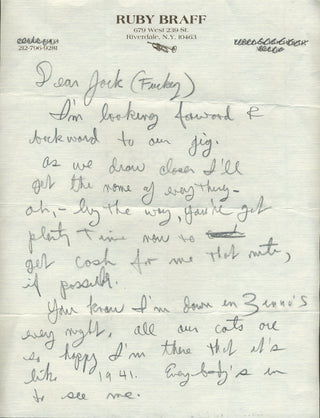 RUBY BRAFF
679 West 239 St.
Riverdale, N.Y. 10463
212-796-0281
Dear Jack (Fucky)
I'm looking forward &
backward to our gig.
As we draw closer I'll
get the name of everything -
oh, - by the way, you've got
plenty time now to
get cash for me that nite,
if possible.
You know I'm down in 3
every night, all our cats are
so happy I'm there that it's
like 1941. Everybody's in
to see me.